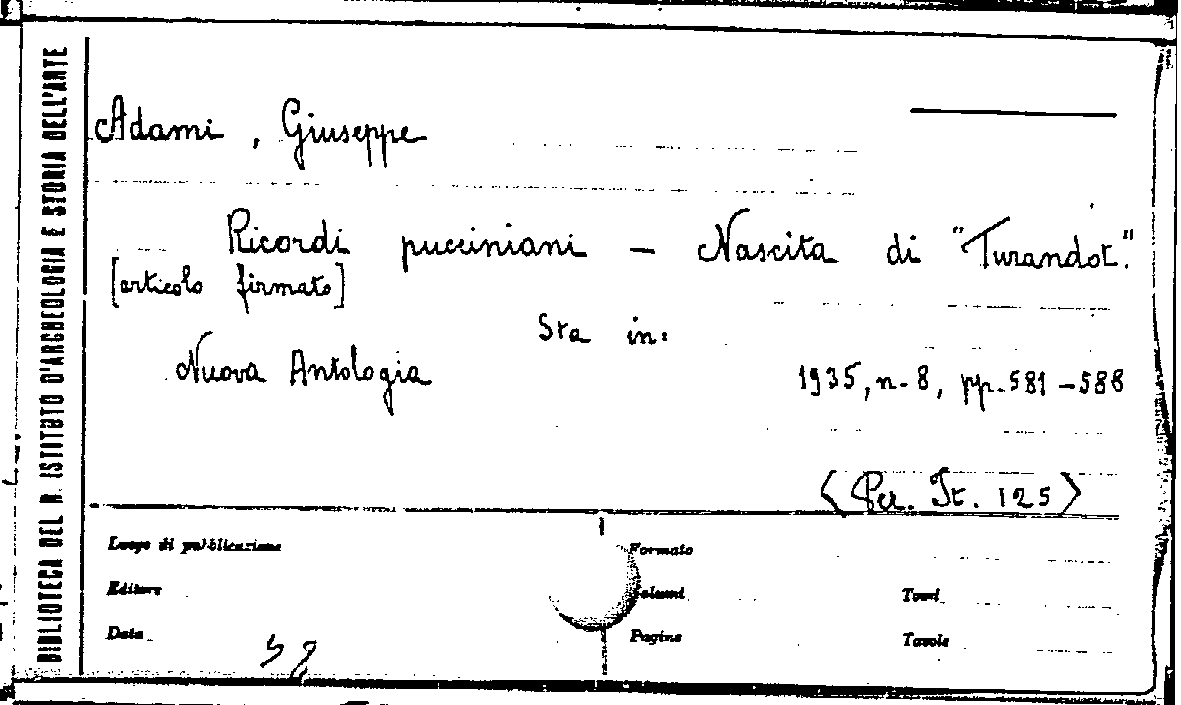 BIBLIOTECA DEL R. ISTITUTO D'ARCHEOLOGIA E STORIA DELL'ARTE
Adami, Giuseppe
Ricordi pucciniani — Nascita di "Turandot".
[articolo firmato]
Sta in:
Nuova Antologia 1935, n. 8, pp. 581-588
<Per. It. 125>
Luogo di pubblicazione
Formato
Editore
Volumi
Tomi
Data
Pagine
Tavole